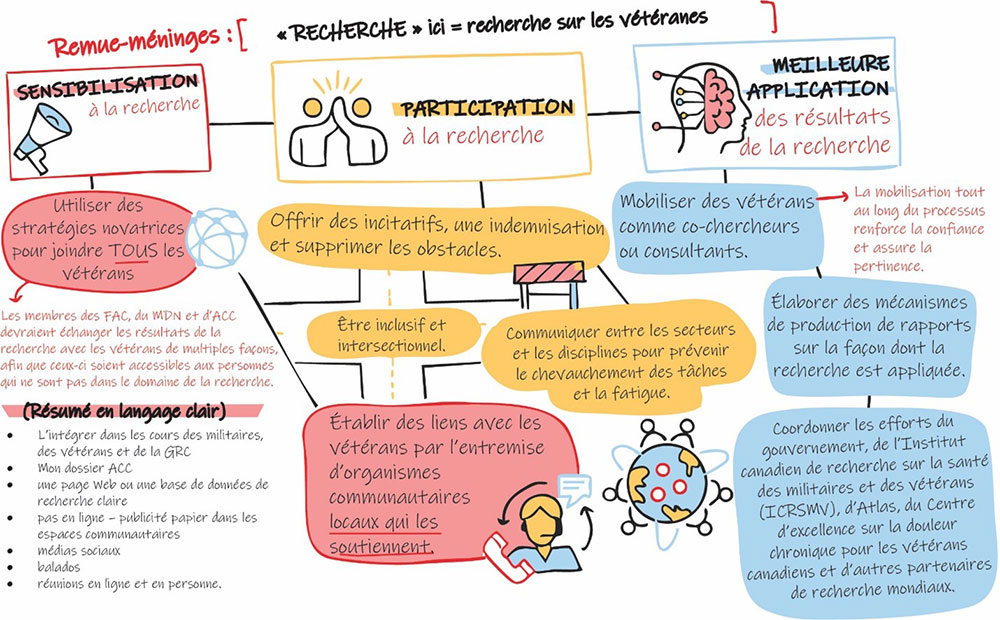 Remue-méninges : [ « RECHERCHE » ici = recherche sur les vétéranes ]
SENSIBILISATION
à la recherche
PARTICIPATION
à la recherche
MEILLEURE
APPLICATION
des résultats
de la recherche
Utiliser des
stratégies novatrices
pour joindre TOUS les
vétérans
Les membres des FAC, du MDN et d'ACC
devraient échanger les résultats de la
recherche avec les vétérans de multiples façons,
afin que ceux-ci soient accessibles aux personnes
qui ne sont pas dans le domaine de la recherche.
(Résumé en langage clair)
• L'intégrer dans les cours des militaires,
des vétérans et de la GRC
• Mon dossier ACC
• une page Web ou une base de données de
recherche claire
• pas en ligne – publicité papier dans les
espaces communautaires
• médias sociaux
• balados
• réunions en ligne et en personne.
Offrir des incitatifs, une indemnisation
et supprimer les obstacles.
Être inclusif et
intersectionnel.
Communiquer entre les secteurs
et les disciplines pour prévenir
le chevauchement des tâches
et la fatigue.
Établir des liens avec les
vétérans par l'entremise
d'organismes
communautaires
locaux qui les
soutiennent.
Mobiliser des vétérans
comme co-chercheurs
ou consultants.
La mobilisation tout
au long du processus
renforce la confiance
et assure la
pertinence.
Élaborer des mécanismes
de production de rapports
sur la façon dont la
recherche est appliquée.
Coordonner les efforts du
gouvernement, de l'Institut
canadien de recherche sur la santé
des militaires et des vétérans
(ICRSMV), d'Atlas, du Centre
d'excellence sur la douleur
chronique pour les vétérans
canadiens et d'autres partenaires
de recherche mondiaux.